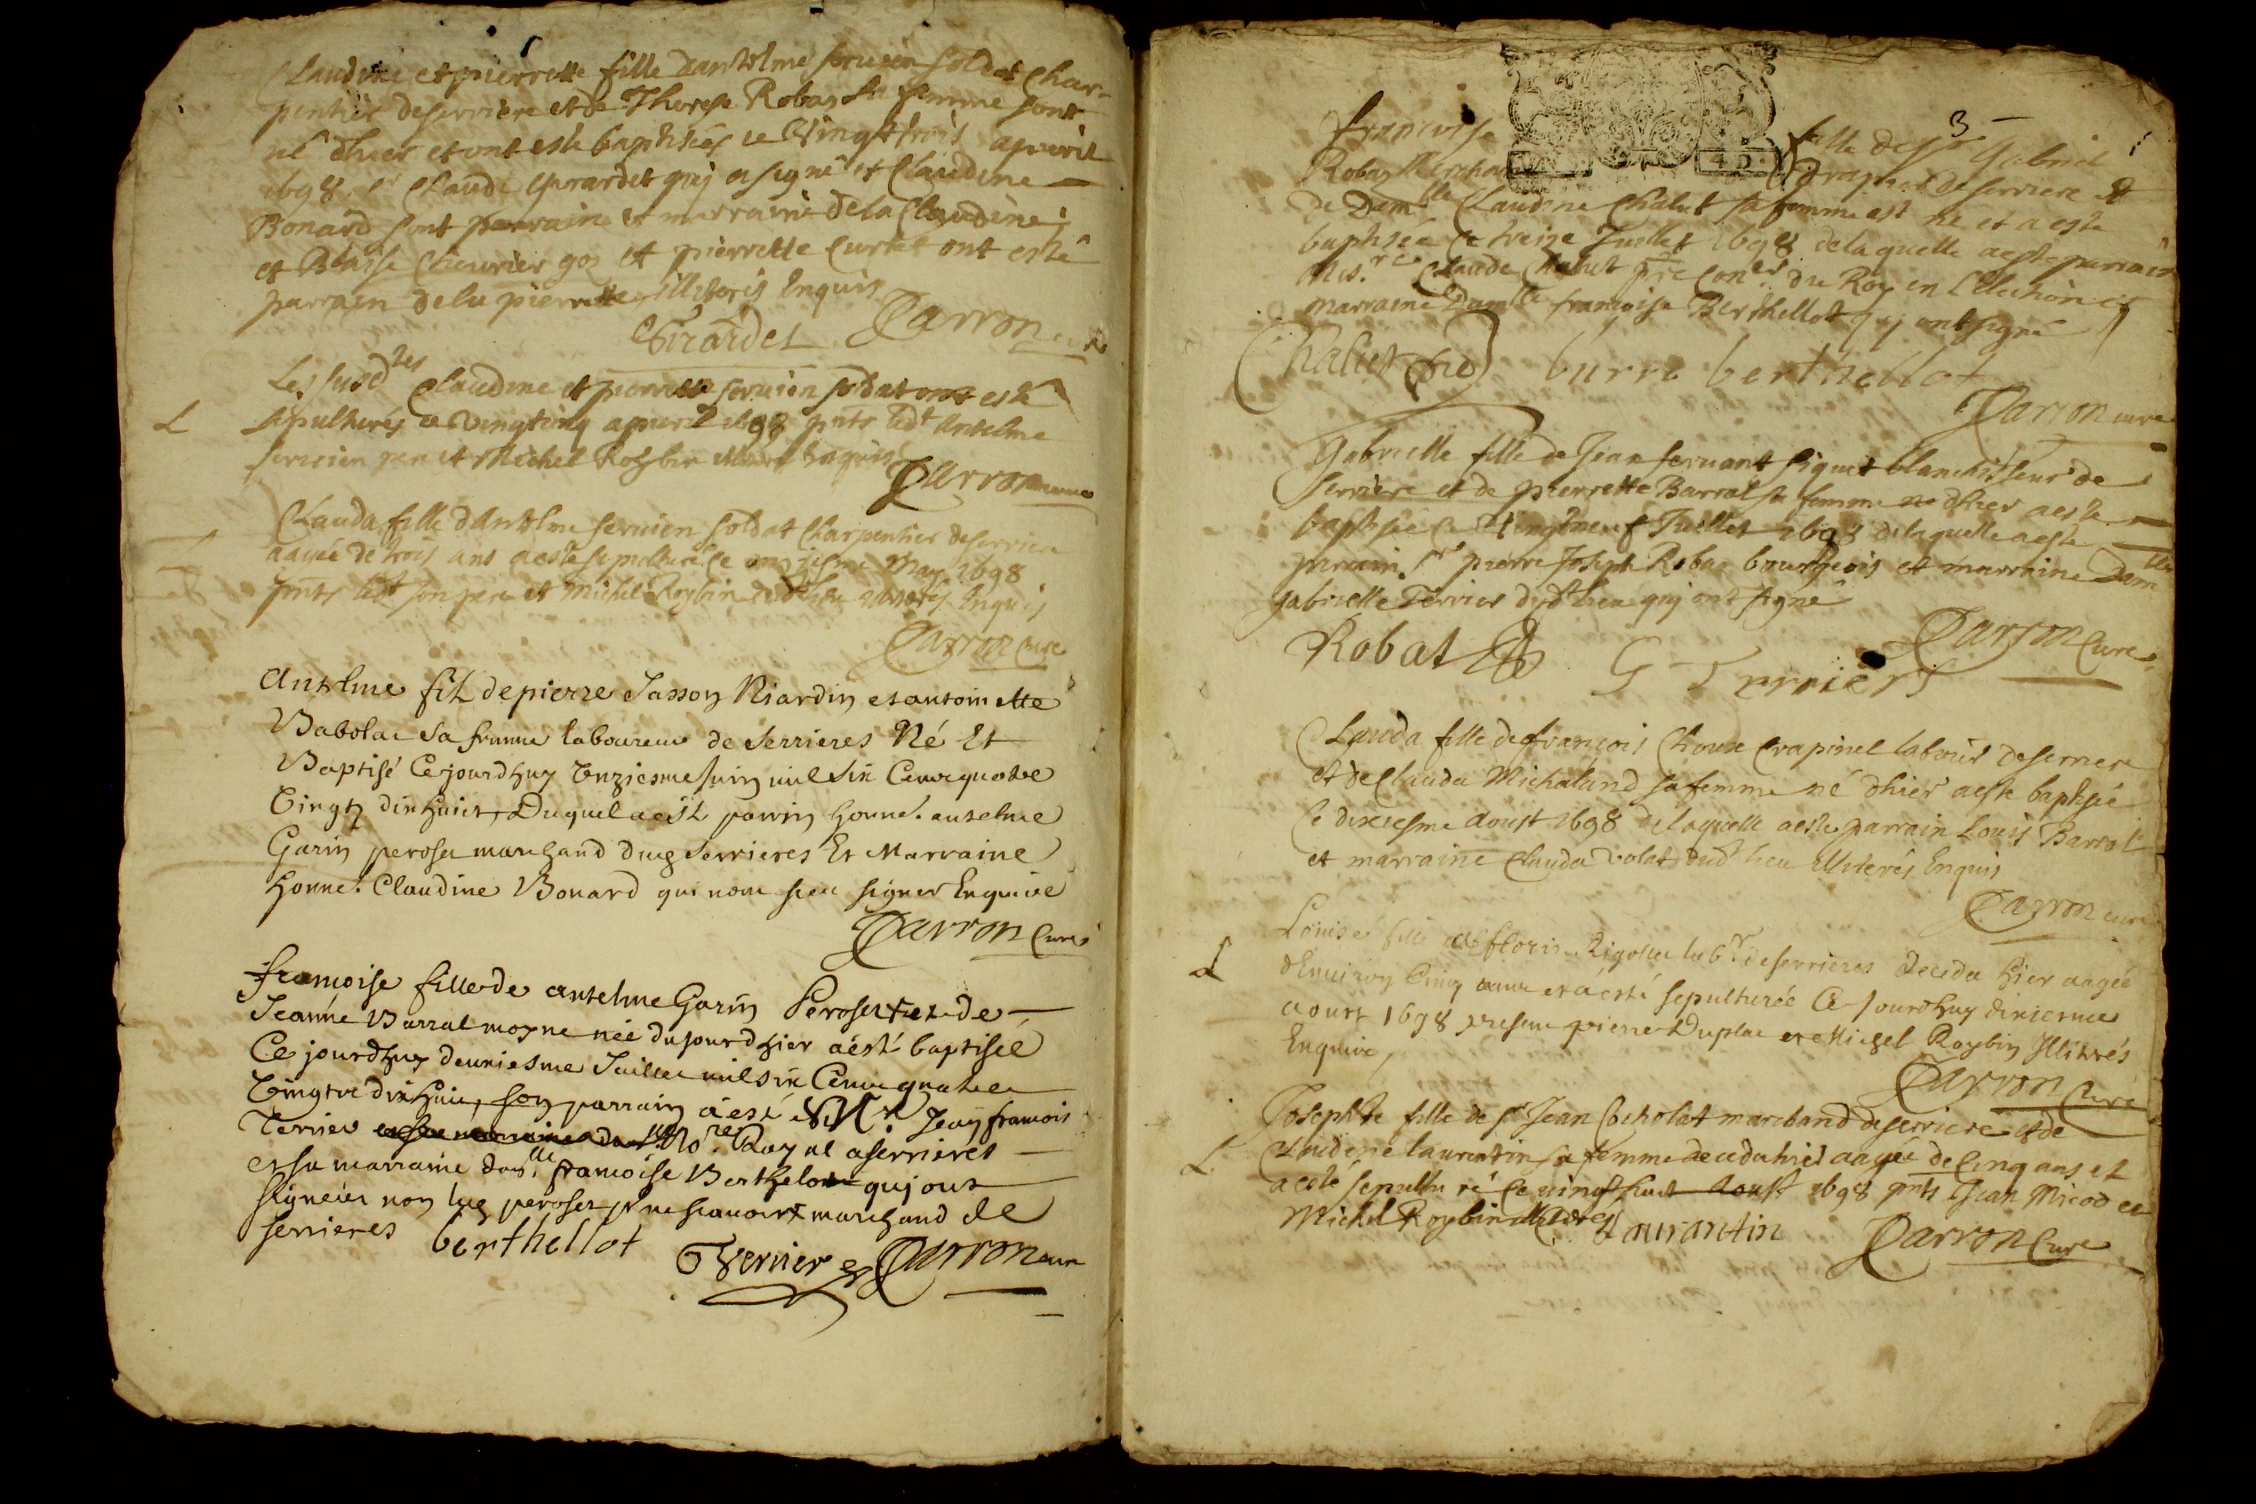 Claudine et pierrette fille danthelme servien soldat char-
pentier deserriere et de Therese Robas sa femme sont
né dhier et ont esté baptisées ce vingttrois apvril
1698 Sr Claude Girardet quj a signé et Claudine
Bonard sont parrain et marraine dela Claudine
et Blaise Cheurier gos et pierrette Curtet ont esté
parrain dela pierrette illiterés Enquis
Girardet Darron curé
Les susdtes Claudine et pierrette servien soldat ont esté
sepulturés ce vingtcinq apvril 1698 pnts ledt Antelme
servien pere et Michel Roybin illiterés Enquis
Darron curé
Clauda fille dAntelme servien soldat Charpentier deserriere
aagée de trois ans a esté sepulturé Ce onziesme May 1698
pnts ledt son pere et Michel Roybin dudt lieu illiterés Enquis
Darron Curé
Antelme filz de pierre Jasson Riardin et antoinette
Babolat sa femme laboureur de Serrieres Né Et
Baptisé Cejourdhuy unziesme Juin mil six Cent quatre
vingtz dix huict, Duquel a esté parrin honne. antelme
Garin peroset marchand dudt Serrieres Et Marraine
honne. Claudine Bonard qui nont sceu signer Enquise
Darron Curé
francoise fille de antelme Garin Peroset et de
Jeanne Barral moyne née du jourdhier a esté baptisée
Ce jourdhuy deuxiesme Juillet mil six Cent quatre
vingtz dix huict, son parrain a esté Mr. Jean francois
Terrier no.re Royal a serrieres
et sa marraine damlle francoise Berthelot quj ont
signéz non led peroset pr ne scavoir marchand de
serrieres berthellot
Terrier Darron curé
3
francoise fille de Sr Gabriel
Robas Marchand Drapier de serriere et
de Demlle Claudine Chalut sa femme est né et a esté
baptisée Ce treize Juillet 1698 de laquelle a esté parrain
Mis.re Claude Chalut pre Coner du Roy en l'Election et
marraine Damlle francoise Berthellot quj ont signé
Chalut burre berthellot
Darron curé
Gabrielle fille de Jean servant piquet blanchisseur de
serriere et de pierrette Barral sa femme né dhier a esté
baptisée Ce vingtneuf Juillet 1698 de laquelle a esté
parrain Sr pierre Joseph Robas bourgeois et marraine Demlle
gabrielle Terrier dudt lieu quj ont signé
Robat G Terrier Darron Curé
Clauda fille de francois Choux Crapinel labour deserriere
et de Clauda Michaland sa femme né dhier a esté baptisé
Ce dixiesme Aoust 1698 de laquelle a esté parrain Louis Barral
et marraine Clauda Volat dudt lieu illiterés Enquis
Darron curé
Louise fille de floris Rigollet labr deserrieres decedée hier aagée
d'Environ Cinq ans et a esté sepulturée Ce Jourdhuy dixiesme
aoust 1698 presens pierre Duplat et Michel Roybin Illitrés
Enquis,
Darron Curé
Josephte fille de Sr Jean Cocholat marchand deserriere et de
Claudine laurentin sa femme decedé hier aagée de Cinq ans et
a esté sepulturé Ce vingthuit Aoust 1698 pnts Jean Micod et
Michel Roybin illiterés Laurantin Darron Curé